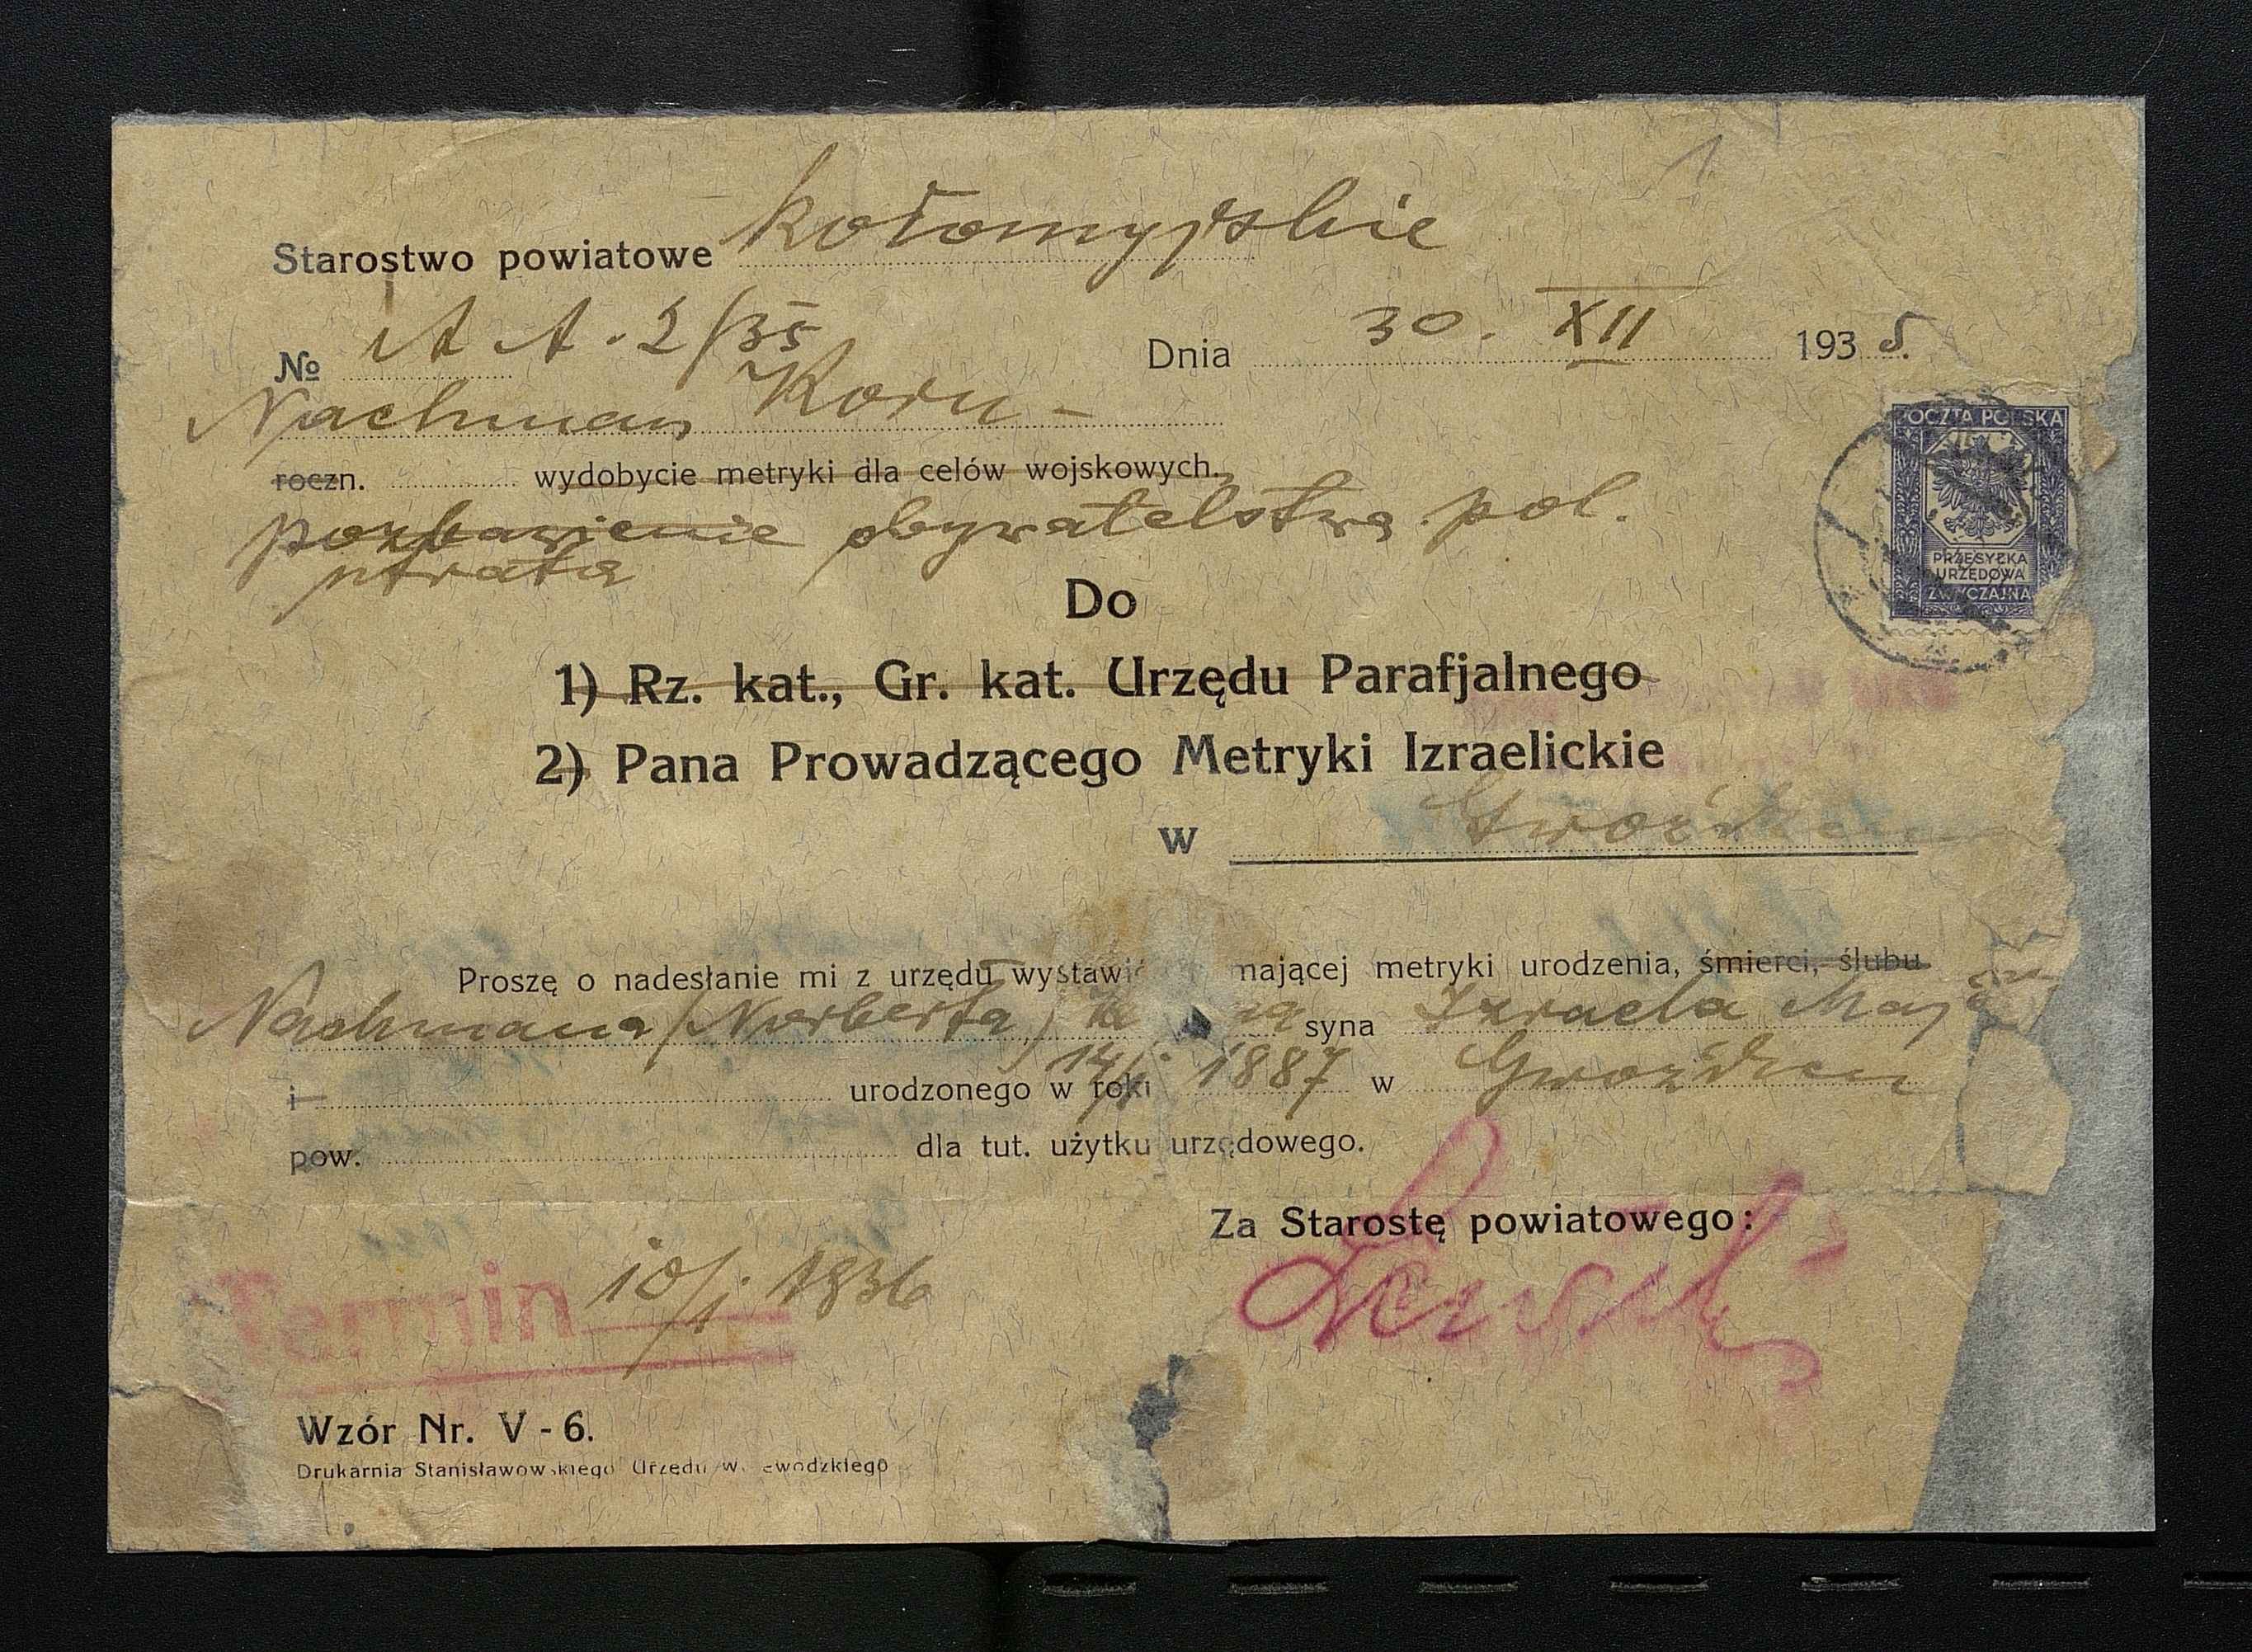 Starostwo powiatowe Kołomyjskie
№ A A. 2/35 Dnia 30. XII 1935.
Nachman Korn -
roczn. wydobycie metryki dla celów wojskowych.
pozbawienie obywatelstwa pol.
utrata
POCZTA POLSKA
PRZESYŁKA
URZĘDOWA
ZWYCZAJNA
Do
1) Rz. kat., Gr. kat. Urzędu Parafjalnego
2) Pana Prowadzącego Metryki Izraelickie
w Gwoźdzcu
Proszę o nadesłanie mi z urzędu mającej metryki urodzenia, śmierci, ślubu
Nachmana (Norberta) syna Izraela
i urodzonego w roku 14/1 1887 w Gwoźdzcu
pow. dla tut. użytku urzędowego.
Za Starostę powiatowego:
Termin 10/1 1936
Wzór Nr. V - 6.
Drukarnia Stanisławowskiego Urzędu